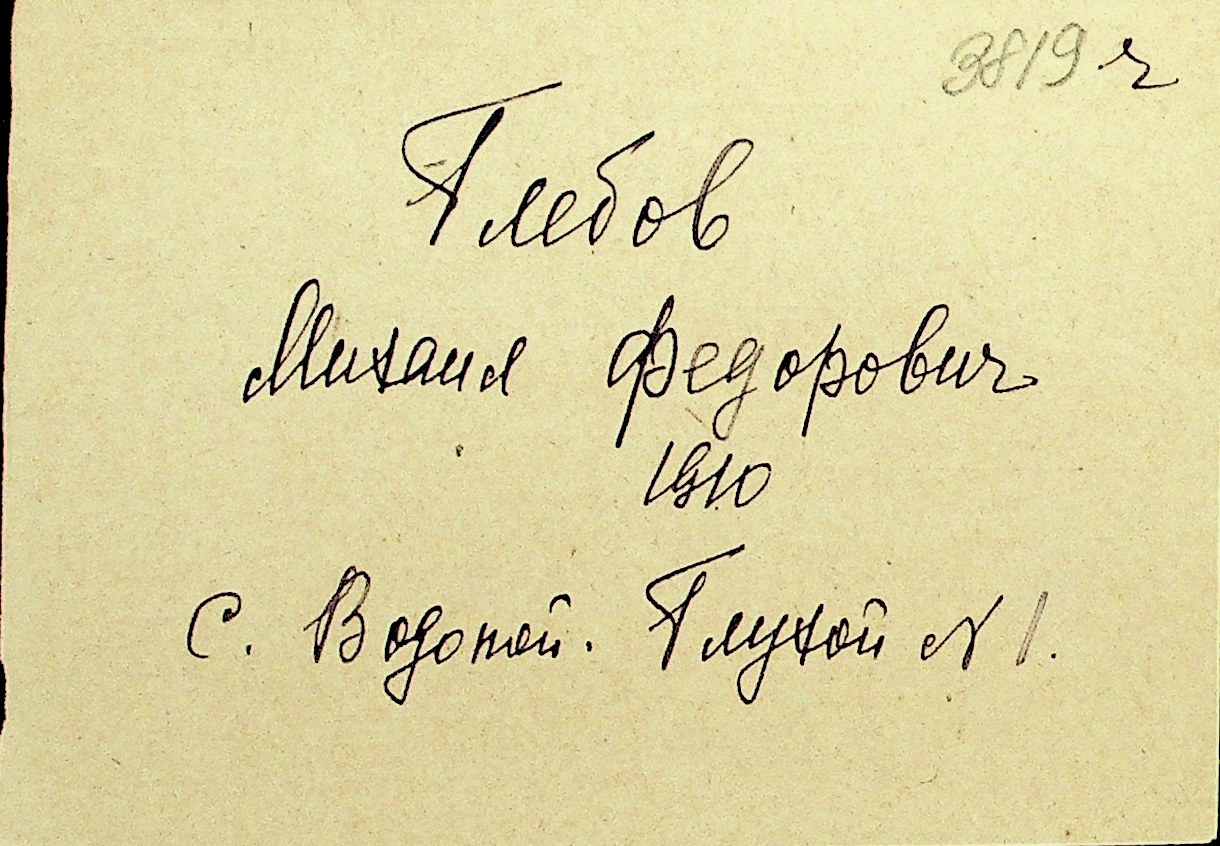 3819 г
Глебов
Михаил Федорович
1910
с. Водопой. Глухой N 1.